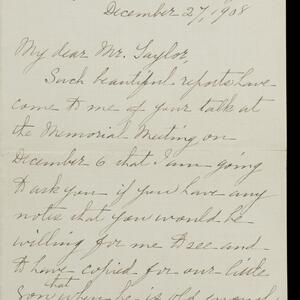 December 27, 1908
My dear Mr. Taylor,
Such beautiful reports have
come to me of your talk at
the Memorial Meeting on
December 6 that I am going
to ask you if you have any
notes that you would be
willing for me to see and
to have copied for our little
that
son when he is old enough